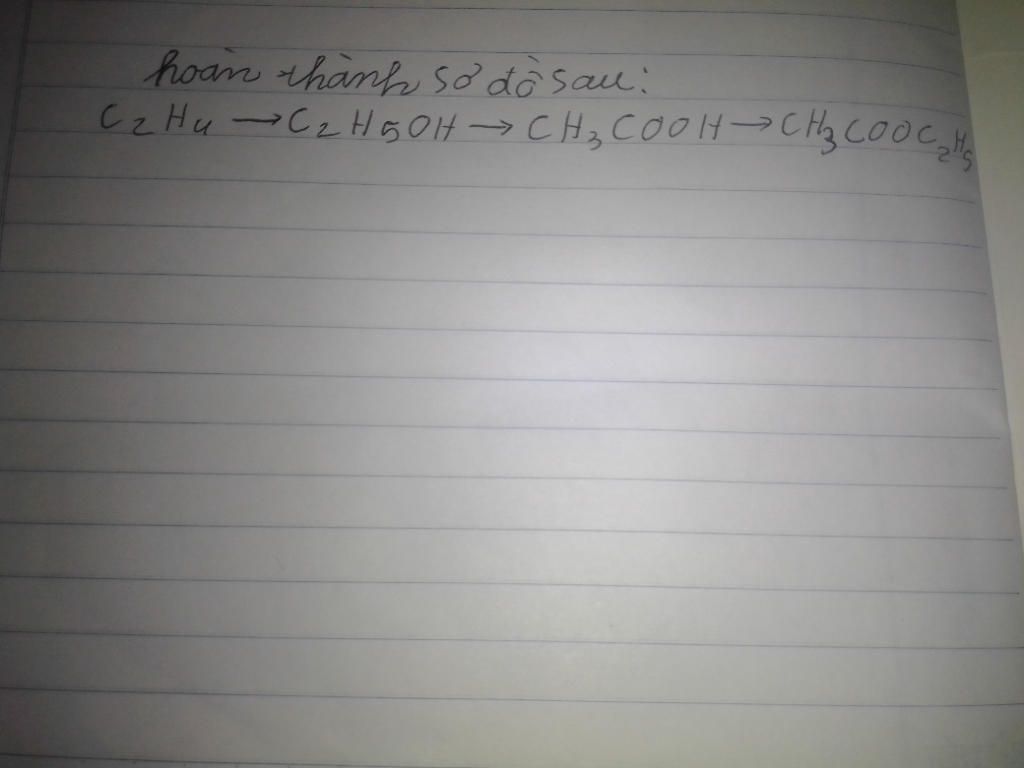 hoàn thành sơ đồ sau:
C₂H₄ → C₂H₅OH → CH₃COOH → CH₃COOC₂H₅